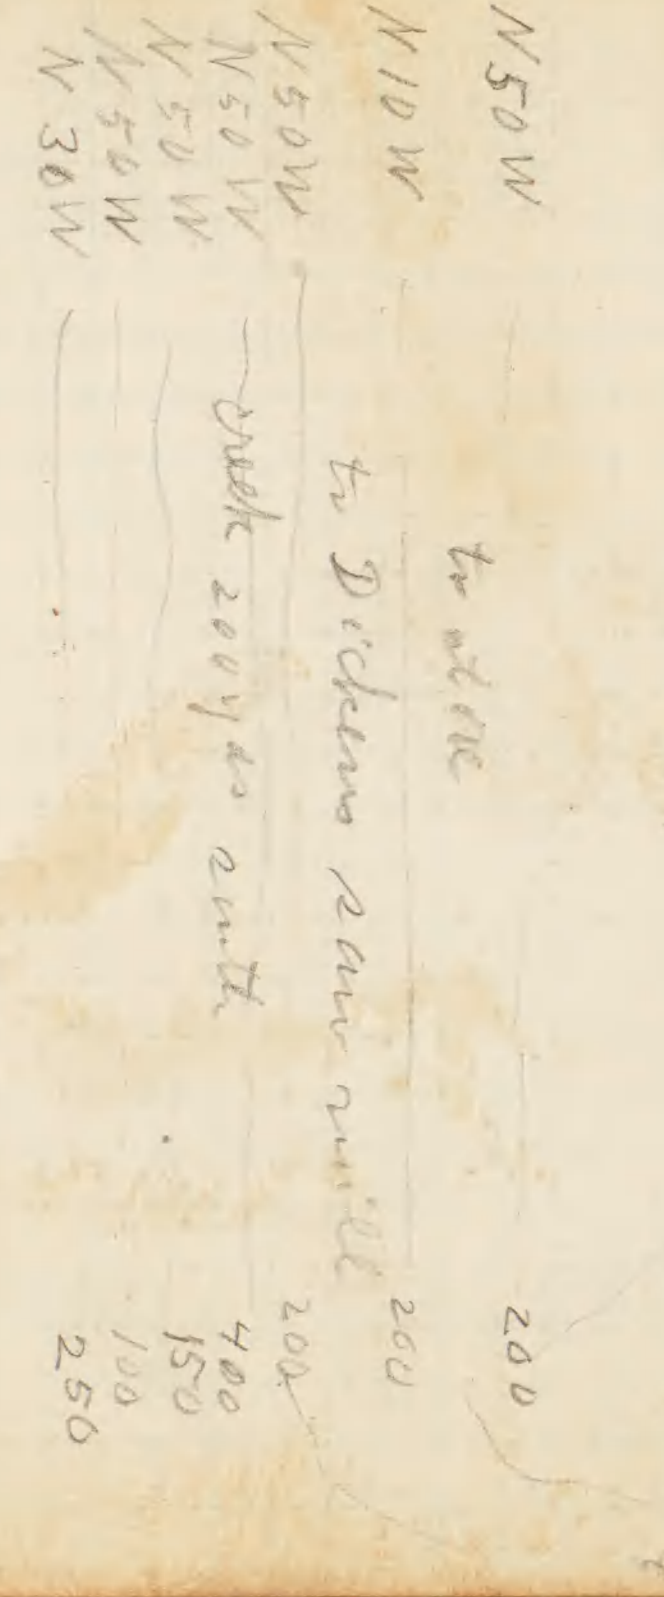 N 50 W 200
to
N 10 W 200
to Dickens saw mill
N 50 W 200
N 50 W creek 200 yds south 400
N 50 W 150
N 50 W 100
N 30 W 250